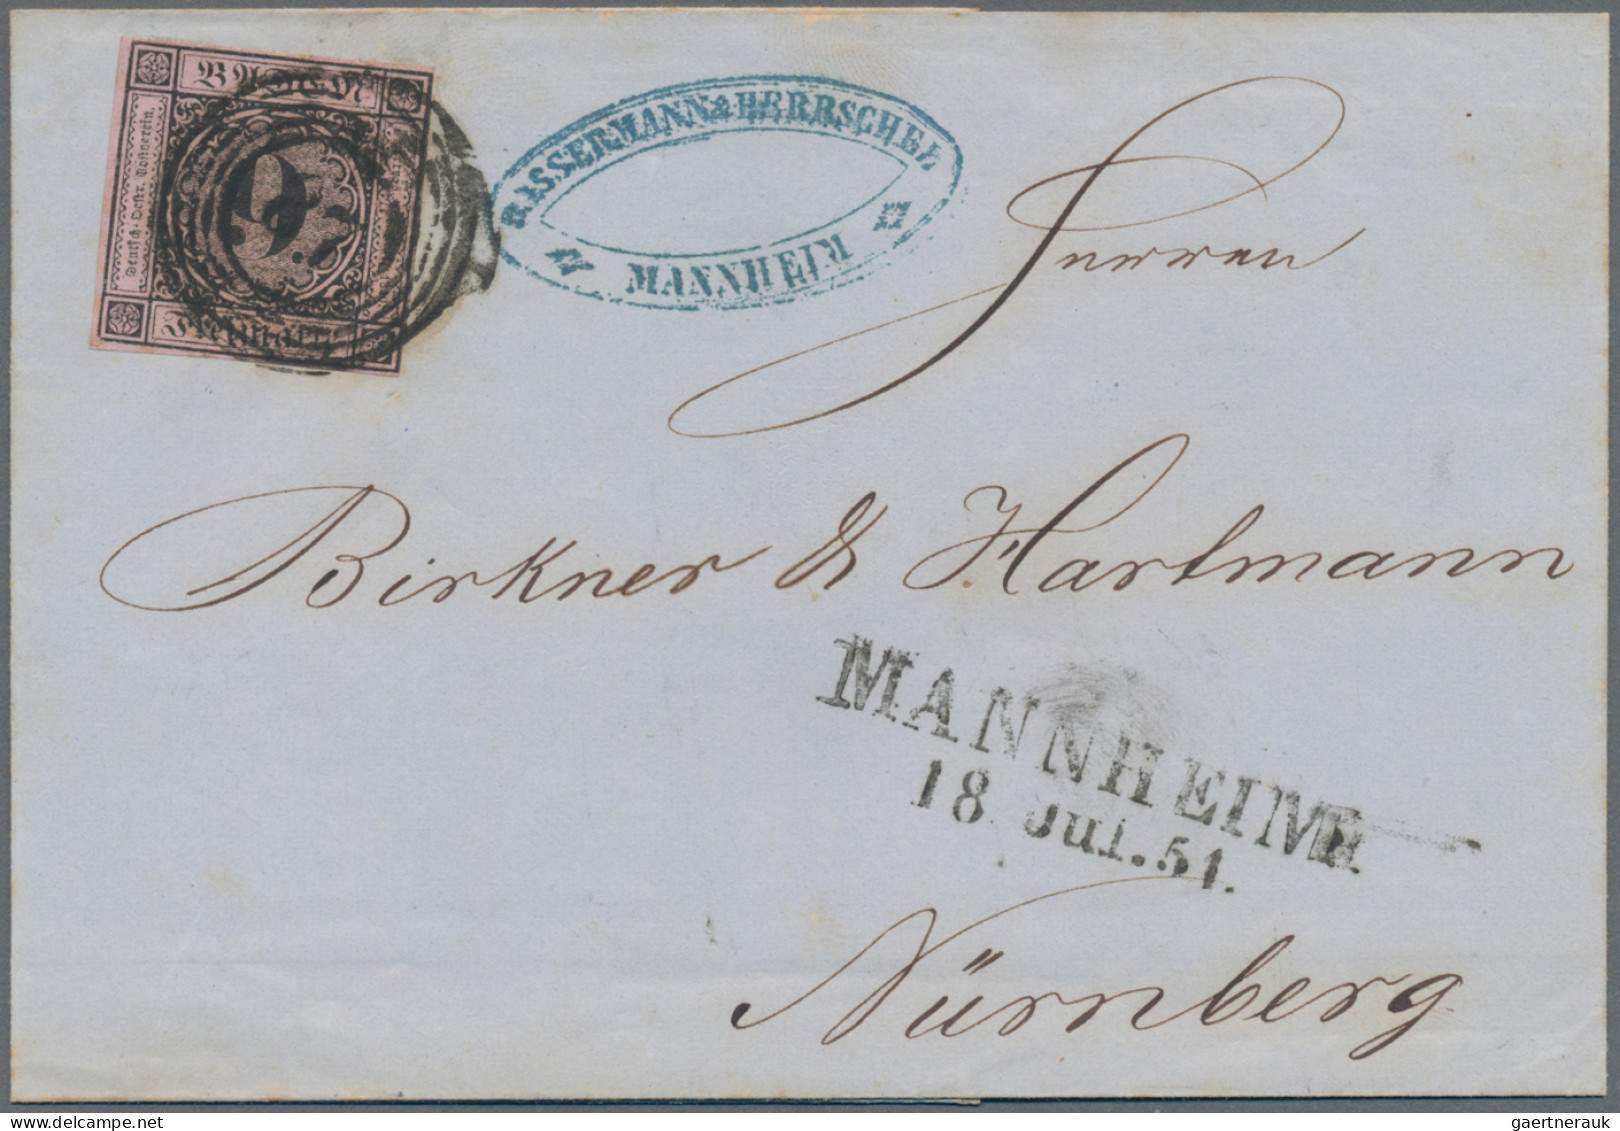 BADEN
Deutsch-Oestr. Postverein.
9
Freimarke
BASSERMANN & HERRSCHEL
MANNHEIM
Herren
Birkner & Hartmann
MANNHEIM
18 Jul. 51.
Nürnberg
gaertnerauk